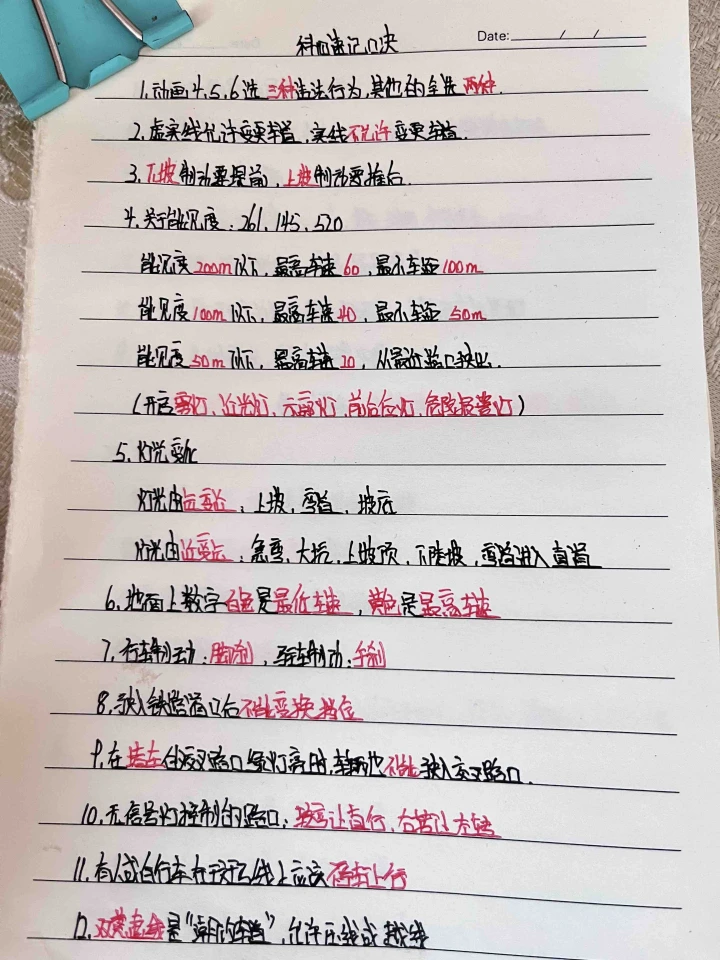 Date: / /
科四速记口决
1.动画4.5.6选三种违法行为,其他的全选两种.
2.虚实线允许变更车道,实线不允许变更车道.
3.下坡制动要提前,上坡制动要推后.
4.关于能见度:261,145,520
能见度200m以下,最高车速60,最小车距100m
能见度100m以下,最高车速40,最小车距50m
能见度50m以下,最高车速20,从最近路口驶出.
(开启雾灯,近光灯,示廓灯,前后位灯,危险报警灯)
5.灯光变化
灯光由远变近:上坡,弯道,坡底
灯光由近变远:急弯,大坑,上坡顶,下陡坡,弯道进入直道
6.地面上数字白色是最低车速,黄色是最高车速
7.行车制动:脚刹,驻车制动:手刹
8.驶入铁路道口后不能变换档位
9.在堵车的交叉路口绿灯亮时,车辆也不能驶入交叉路口.
10.无信号灯控制的路口:转弯让直行,右转让左转
11.有人或自行车在斑马线上应该停车让行
12.双黄虚线是"潮汐车道",允许压线或越线